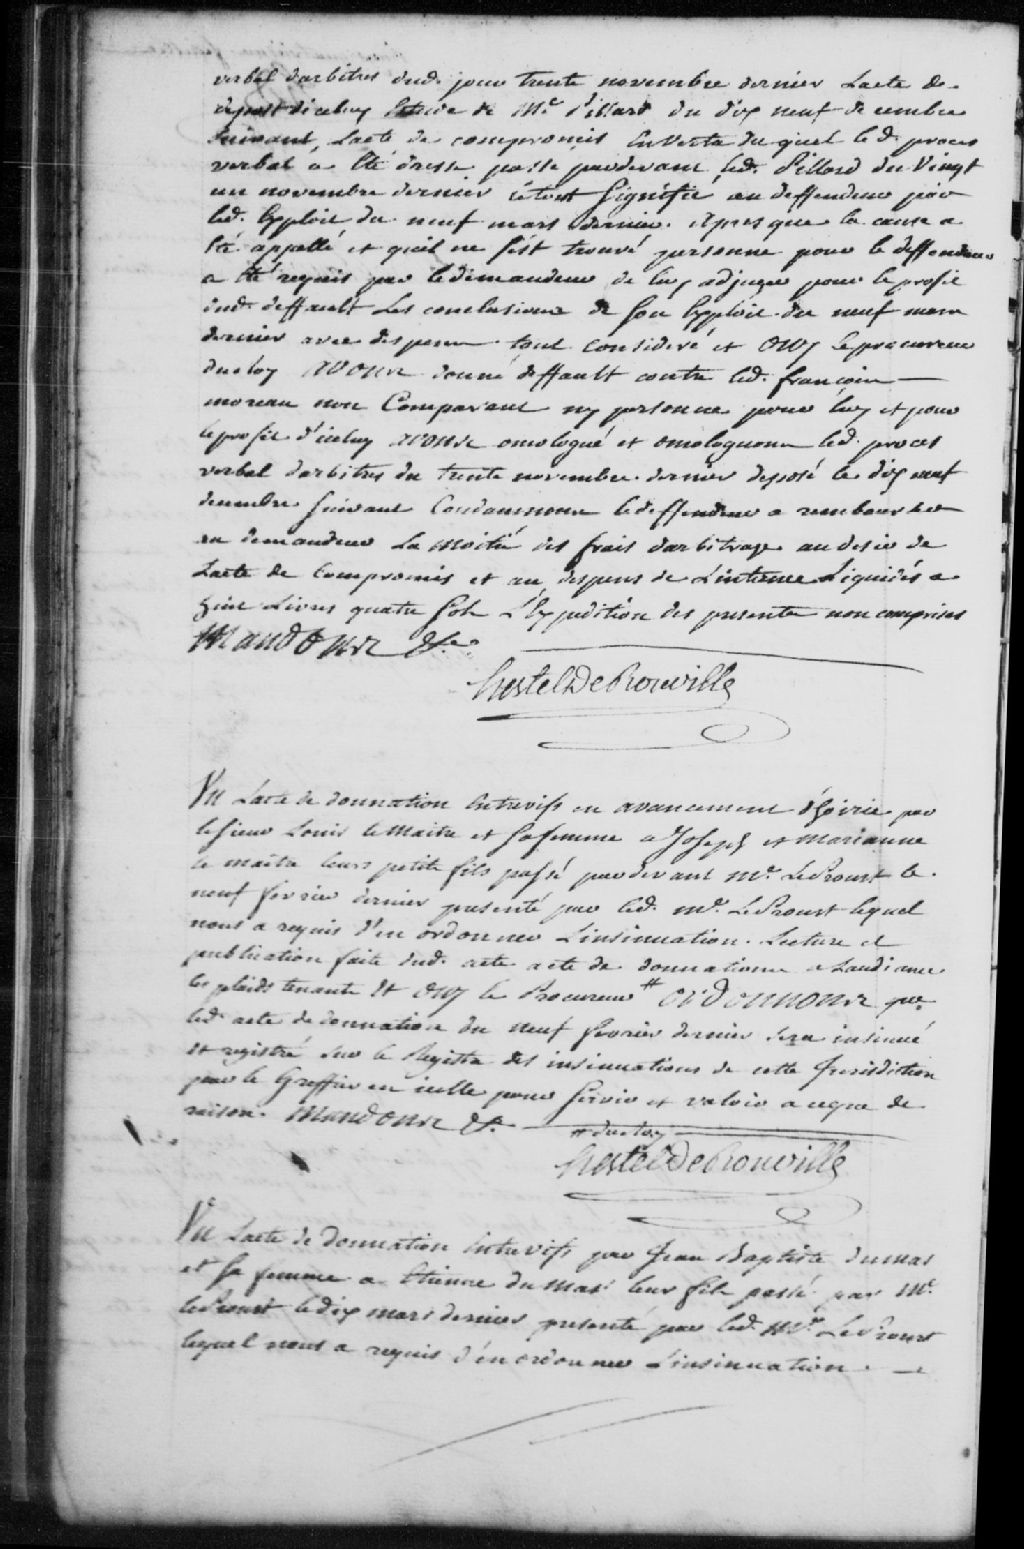 verbal darbitres dud. jour trente novembre dernier Lacte de
depost diceluy Etude de Me. Pillard du dix neuf decembre
suivant, Lacte de compromis En vertu du quel led. proces
verbal a Eté dressé passé pardevant led. Pillard du Vingt
un novembre dernier le tout Signifié au deffendeur par
led. Exploit du neuf mars dernier. apres que la cause a
Eté appellé et quil ne sest trouvé personne pour le deffendeur
a Eté requis par le demandeur de luy adjuger pour le profit
dud. deffault Les conclusions de son Exploit du neuf mars
dernier avec depens tout consideré et OUY le procureur
du Roy AVONS donné deffault contre led. françois
moreau non Comparant ny personne pour luy et pour
le profit d'iceluy AVONS omologué et omologuons led. proces
verbal darbitres du trente novembre dernier deposé le dix neuf
decembre suivant Condamnons le deffendeur a rembourser
au demandeur La moitié des frais darbitrage au desir de
Lacte de Compromis et au depens de Linstance Liquidés a
Livres quatre sols L'Expedition des presentes non comprises
MandOns &c.
hertel De Rouville
Vu Lacte de donnation Entrevifs en avancement d'hoirie par
le sieur Louis le Maitre et sa femme a Joseph et Marianne
le maitre leurs petits fils passé pardevant Me. LeProust le
neuf fevrier dernier presenté par led. Me. LeProust lequel
nous a requis d'en ordonner Linsinuation. Lecture et
publication faite dud. acte acte de donnation a Laudiance
les plaids tenants Et OUY le Procureur # ORDONNONS que
led. acte de donnation du neuf fevrier dernier sera insinué
Et registré sur le Registre des insinuations de cette Jurisdiction
par le Greffier en icelle pour servir et valoir a ceque de
raison. MandOns &c.
# du Roy
hertel De Rouville
Vu Lacte de Donnation Entrevifs par Jean Baptiste dumas
et sa femme a Etienne du Mas leur fils passé par Me.
LeProust le dix mars dernier presenté par led. Me. LeProust
lequel nous a requis d'en ordonner Linsinuation.